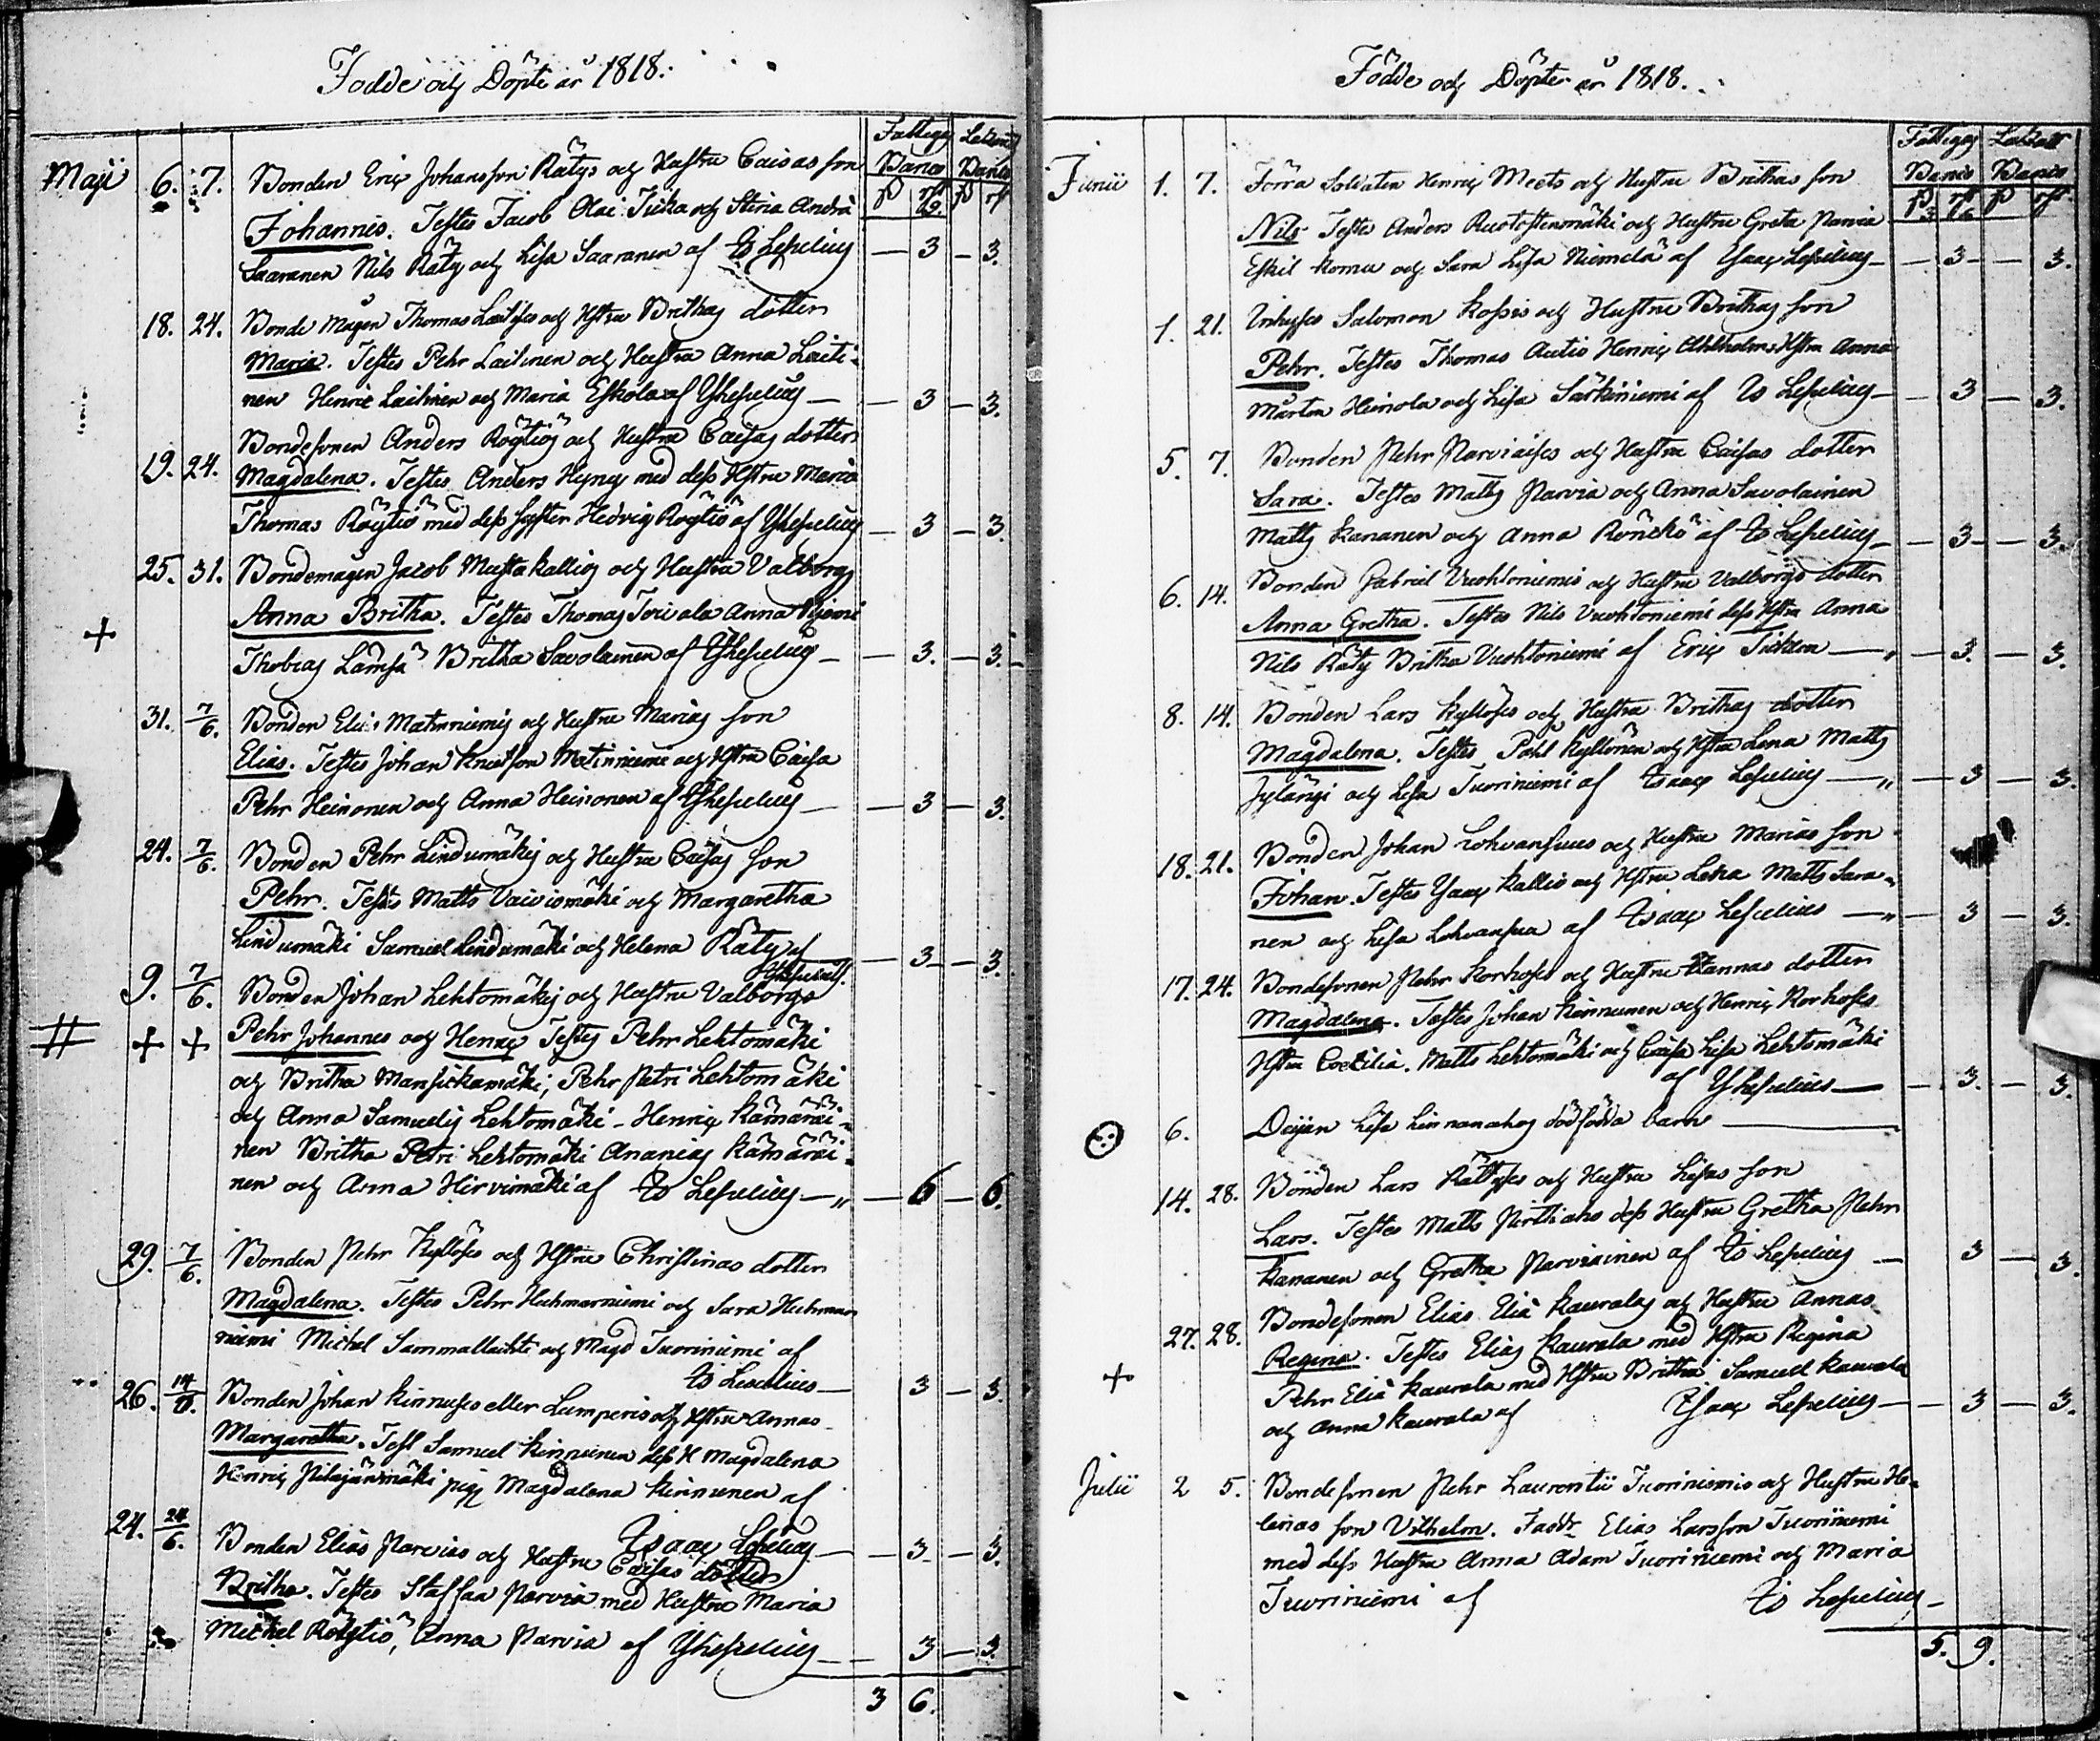 Födde och Döpte år 1818.
Fattigg Lektor
Banco Banco
Maji 6. 7. Bonden Eric Johansson Rätys och Hustru Caisas son
Johannes. Testes Jacob Olai Tuka och Stina Andrae
Saaranen Nils Räty och Lisa Saaranen af Is Leselius — 3 — 3.
18. 24. Bonde mågen Thomas Laitises och Hstru Brithas dotter
Maria. Testes Pehr Laitinen och Hustru Anna Laiti-
nen Henric Laitinen och Maria Eskola af Is Leselius — 3 — 3.
Bondesonen Anders Röytiös och Hustru Caisas dotter
19. 24. Magdalena. Testes Anders Heyney med dess Hstru Maria
Thomas Röytiö med dess syster Hedvig Röytiö af Is Leselius — 3 — 3.
25. 31. Bondemågen Jacob Mustakallios och Hustru Valborgs
Anna Britha. Testes Thomas Anna
Thobias Lämsä Britha Savolainen af Is Leselius — 3. — 3.
31. 7/6. Bonden Elias Matinniemis och Hustru Marias son
Elias. Testes Johan Knutson Matinniemi och Hstru Caisa
Pehr Heinonen och Anna Heinonen af Is Leselius — 3 — 3.
24. 7/6. Bonden Pehr Lindumäkis och Hustru Caisas son
Pehr. Testes Matts Vaivismäki och Margaretha
Lindumäki Samuel Lindumäki och Helena Räty af — 3 — 3.
Is Leselius
9. 7/6. Bonden Johan Lehtomäkis och Hustru Valborgs
# + + Pehr Johannes och Henric Testes Pehr Lehtomäki
och Britha Mansickamäki, Pehr Petri Lehtomäki
och Anna Samuelis Lehtomäki - Henric Kämäräi-
nen Britha Petri Lehtomäki Ananias Kämäräi-
nen och Anna Hirvimäki af Is Leselius — 6 — 6.
29. 7/6. Bonden Pehr Kyllöses och Hstru Christinas dotter
Magdalena. Testes Pehr Huhmarniemi och Sara Huhmar-
niemi Michel Sammallachti och Magd Tuoriniemi af
Is Leselius — 3 — 3
26. 14/6. Bonden Johan Kinnuses eller Lumperis och Hstru Annas
Margaretha. Test Samuel Kinnunen dess H Magdalena
Henric Pilajänmäki pig Magdalena Kinnunen af
Isaac Leselius — 3 — 3.
24. 24/6. Bonden Elias Parvias och Hustru Caisas dotter
Britha. Testes Staffan Parvia med Hustru Maria
Michel Röytiö, Anna Parvia af Is Leselius — 3 — 3.
3 6.
Födde och Döpte år 1818.
Fattigg Lektor
Banco Banco
Junii 1. 7. Förra Soldaten Henric Meets och Hustru Brithas son
Nils Testes Anders Ruotostenmäki och Hustru Greta Parvia
Eskil Komu och Sara Lisa Niemelä af Isaac Leselius — 3 — 3.
1. 21. Inhyses Salomon Kossis och Hustru Brithas son
Pehr. Testes Thomas Autio Henric Ahlholm, Hstru Anna
Mårten Heinola och Lisa Särkiniemi af Is Leselius — 3 — 3.
5. 7. Bonden Pehr Parviaises och Hustru Caisas dotter
Sara. Testes Matts Parvia och Anna Savolainen
Matts Kananen och Anna Rönckö af Is Leselius — 3 — 3.
6. 14. Bonden Gabriel Vuohtoniemis och Hustru Valborgs dotter
Anna Gretha. Testes Nils Vuohtoniemi dess Hstru Anna
Nils Räty Britha Vuohtoniemi af Eric — 3. — 3.
8. 14. Bonden Lars Kyllöses och Hustru Brithas dotter
Magdalena. Testes Påhl Kyllönen och Hstru Lena Matts
Jylängi och Lisa Tuoriniemi af Isaac Leselius — 3 — 3.
18. 21. Bonden Johan Lohvansuus och Hustru Marias son
Johan. Testes Isaac Kallio och Hstru Lena Matts Sara-
nen och Lisa Lohvansuu af Isaac Leselius — 3 — 3.
17. 24. Bondesonen Pehr Korhoses och Hustru Hannas dotter
Magdalena. Testes Johan Kinnunen och Henric Korhoses
Hstru Coecilia. Matts Lehtomäki och Caisa Lisa Lehtomäki
af Is Leselius — 3. — 3.
6. Deijan Lisa Linnanahos dödfödda barn
14. 28. Bonden Lars Rättyses och Hustru Lisas son
Lars. Testes Matts Pirttiaho dess Hustru Gretha Pehr
Kananen och Gretha Parviainen af Is Leselius — 3 — 3.
27. 28. Bondesonen Elias Eliae Kauralas och Hustru Annas
Regina. Testes Elias Kaurala med Hstru Regina
+ Pehr Eliae Kaurala med Hstru Britha. Samuel Kaurala
och Anna Kaurala af Isaac Leselius — 3 — 3.
Julii 2 5. Bondesonen Pehr Laurentii Tuoriniemis och Hustru He-
lenas son Vilhelm. Faddr Elias Larsson Tuoriniemi
med dess Hustru Anna Adam Tuoriniemi och Maria
Tuoriniemi af Is Leselius —
5. 9.